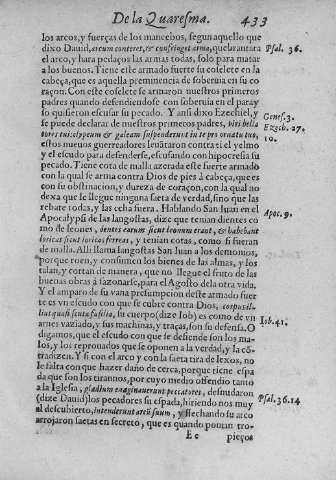 De la Quaresma. 433
los arcos, y fuerças de los mancebos, segun aquello que
dixo Dauid, arcum conteret, & confringet arma, quebrantara
el arco, y hara pedaços las armas todas, solo para matar
a los buenos. Tiene este armado fuerte su coselete en la
cabeça, que es aquella preminencia de soberuia en su co
raçon. Con este coselete se armaron nuestros primeros
padres quando defendiendose con soberuia en el paray
so quisieron escusar su pecado. Y ansi dixo Ezechiel, y
se puede declarar de nuestros primeros padres, viri bella
tores tui clypeum & galeam suspenderunt in te pro ornatu tuo,
estos nueuos guerreadores leuãtaron contra ti el yelmo
y el escudo para defenderse, escusando con hipocresia su
pecado. Tiene cota de malla azerada este fuerte armado
con la qual se arma contra Dios de pies à cabeça, que es
con su obstinacion, y dureza de coraçon, con la qual no
dexa que le llegue ninguna saeta de verdad, sino que las
rebate todas, y las echa fuera. Hablando San Iuan en el
Apocalypsi de las langostas, dize que tenian dientes co
mo de leones, dentes earum sicut leonum erant, & habebant
loricas sicut loricas ferreas, y tenian cotas, como si fueran
de malla. Alli llama langostas San Iuan a los demonios,
porque roen, y consumen los bienes de las almas, y los
talan, y cortan de manera, que no llegue el fruto de las
buenas obras à sazonarse, para el Agosto dela otra vida.
Y el amparo de su vana presumpcion deste armado fuer
te es vn escudo con que se cubre contra Dios, corpus il-
lius quasi scuta fusilia, su cuerpo (dize Iob) es como de vn
arnes vaziado, y sus machinas, y traças, son su defensa. O
digamos, que el escudo con que se defiende son los ma-
los, y los reprouados que se oponen a la verdad, y la cõ-
tradizen. Y si con el arco y con la saeta tira de lexos, no
le falta con que hazer daño de cerca, porque tiene espa
da que son los tirannos, por cuyo medio offendio tanto
a la Iglesia, gladium euaginauerunt peccatores, desnudaron
(dize Dauid) los pecadores su espada, hiriendo nos muy
al descubierto, intenderunt arcũ suum, y flechando su arco
arrojaron saetas en secreto, que es quando ponian tro-
Ee pieços
Psal. 36.
Genes. 3.
Ezech. 27.
10.
Apoc. 9.
Iob. 41.
Psal. 36. 14